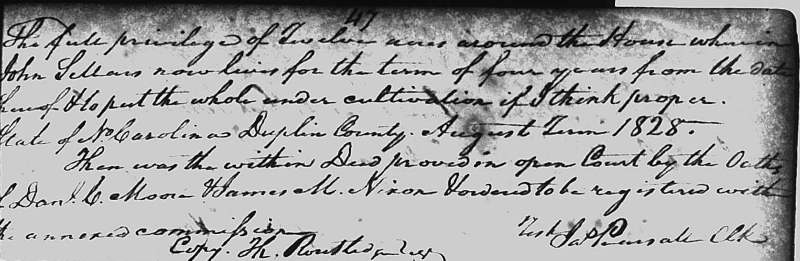 47
The full privilege of Twelve acres around the House wherein
John Sellars now lives for the term of four years from the date
hereof & to put the whole under cultivation if I think proper.
State of No Carolina Duplin County. August Term 1828.
Then was the within Deed proved in open Court by the Oaths
of Danl. C. Moore & James M. Nixon & ordered to be registered with
the annexed commission
Test Jas Pearsall Clk
Copy. Th. Routledge